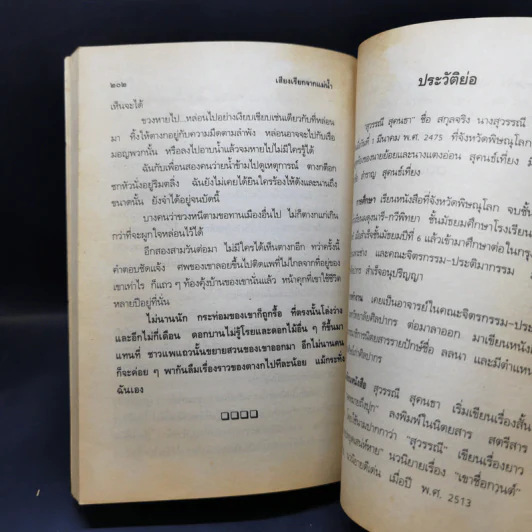 ๒๐๒ เสียงเรียกจากแม่น้ำ
เห็นจะได้
ชวงหายไป...หล่อนไปอย่างเงียบเชียบเช่นเดียวกับที่หล่อน
มา ทิ้งให้ดางกอยู่กับความมืดตามลำพัง หล่อนอาจจะไปกับเรือ
มอญพวกนั้น หรือลงไปอาบน้ำแล้วจมหายไปไม่มีใครรู้ได้
ฉันกับเพื่อนสองคนว่ายน้ำข้ามไปดูเหตุการณ์ ดางกต็อก
ชกหัวนั่งอยู่ริมตลิ่ง ฉันยังไม่เคยได้ยินใครร้องไห้ดังและนานถึง
ขนาดนั้น ยังจำได้อยู่จนบัดนี้
บางคนว่าชวงหนีตามขอทานเมืองอื่นไป ไม่ก็ดางกแก่เกิน
กว่าที่จะผูกใจหล่อนไว้ได้
อีกสองสามวันต่อมา ไม่มีใครได้เห็นดางกอีก ทว่าครั้งนี้
คำตอบชัดแจ้ง ศพของเขาลอยขึ้นไปติดแพที่ไม่ไกลจากที่อยู่ของ
เขาเท่าไร ก็แถว ๆ ท้องคุ้งบ้านของเขานั่นแล้ว หน้าคุกที่เขาใช้ชีวิต
หลายปีอยู่ที่นั่น
ไม่นานนัก กระท่อมของเขาก็ถูกรื้อ ที่ตรงนั้นโล่งว่าง
และอีกไม่กี่เดือน ดอกบานไม่รู้โรยและดอกไม้อื่น ๆ ก็ขึ้นมา
แทนที่ ชาวแพแถวนั้นขยายสวนของเขาออกมา อีกไม่นานคน
ก็จะค่อย ๆ พากันลืมเรื่องราวของดางกไปทีละน้อย แม้กระทั่ง
ฉันเอง
ประวัติย่อ
"สุวรรณี สุคนธา" ชื่อ สกุลจริง นางสุวรรณี
วันที่ 1 มีนาคม พ.ศ. 2475 ที่จังหวัดพิษณุโลก
ของนายย้อยและนางแตงอ่อน สุคนธ์เที่ยง
สำราญ สุคนธ์เที่ยง
การศึกษา เรียนหนังสือที่จังหวัดพิษณุโลก จบชั้น
ชั้นมัธยมศึกษาโรงเรียน
สำเร็จชั้นมัธยมปีที่ 6 แล้วเข้ามาศึกษาต่อในกรุง
และคณะจิตรกรรม-ประติมากรรม
สำเร็จอนุปริญญา
เคยเป็นอาจารย์ในคณะจิตรกรรม-ประ
ศิลปากร ต่อมาลาออก มาเขียนหนัง
นิตยสารรายปักษ์ชื่อ ลลนา และมีตำแห
สุวรรณี สุคนธา เริ่มเขียนเรื่องสั้น
ลงพิมพ์ในนิตยสาร สตรีสาร
นามปากกาว่า "สุวรรณี" เขียนเรื่องยาว
นวนิยายเรื่อง "เขาชื่อกานต์"
เมื่อปี พ.ศ. 2513